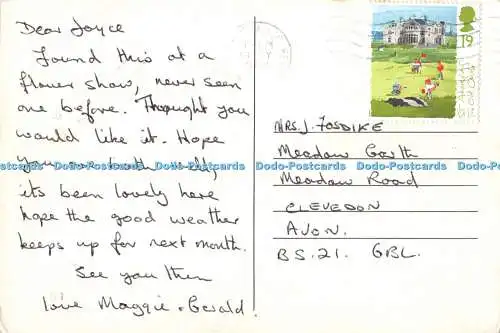 Dear Joyce
Found this at a
flower show, never seen
one before. Thought you
would like it. Hope
you are both well,
its been lovely here
hope the good weather
keeps up for next month.
See you then
love Maggie & Gerald.
19
MRS. J. FOSDIKE
Meadow Garth
Meadow Road
CLEVEDON
AVON.
BS.21. 6BL.
Dodo-Postcards Dodo-Postcards Dodo-Postcards Dodo-Postcards Dodo-Postcards Dodo-Postcards